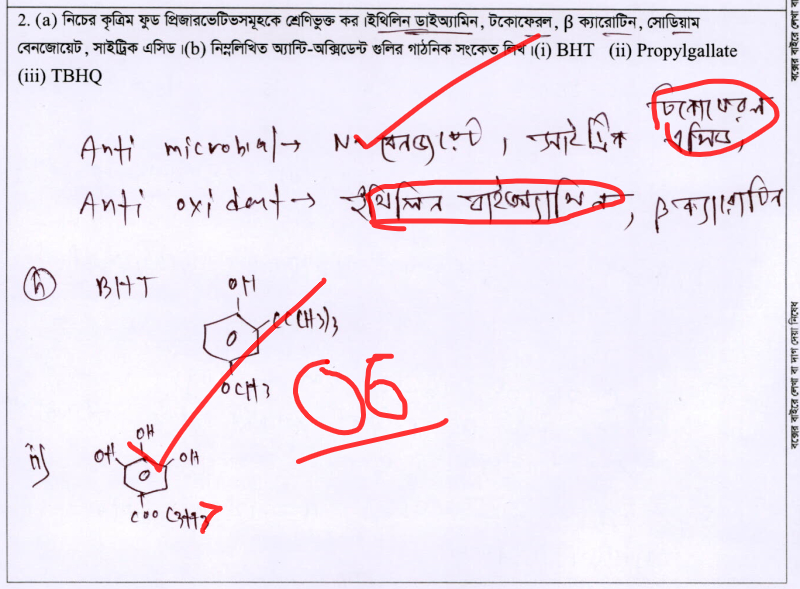 2. (a) নিচের কৃত্রিম ফুড প্রিজারভেটিভসমূহকে শ্রেণিভুক্ত কর।ইথিলিন ডাইঅ্যামিন, টকোফেরল, β ক্যারোটিন, সোডিয়াম
বেনজোয়েট, সাইট্রিক এসিড।(b) নিম্নলিখিত অ্যান্টি-অক্সিডেন্ট গুলির গাঠনিক সংকেত লিখ।(i) BHT (ii) Propylgallate
(iii) TBHQ
টকোফেরল
Anti microbial → Na বেনজোয়েট, সাইট্রিক এসিড,
Anti oxident → ইথিলিন ডাইঅ্যামিন, β ক্যারোটিন
i) BHT
OH
C(CH3)3
OCH3
06
ii)
OH
OH OH
COO C3H7
বক্সের বাইরে লেখা বা দাগ দেয়া নিষেধ